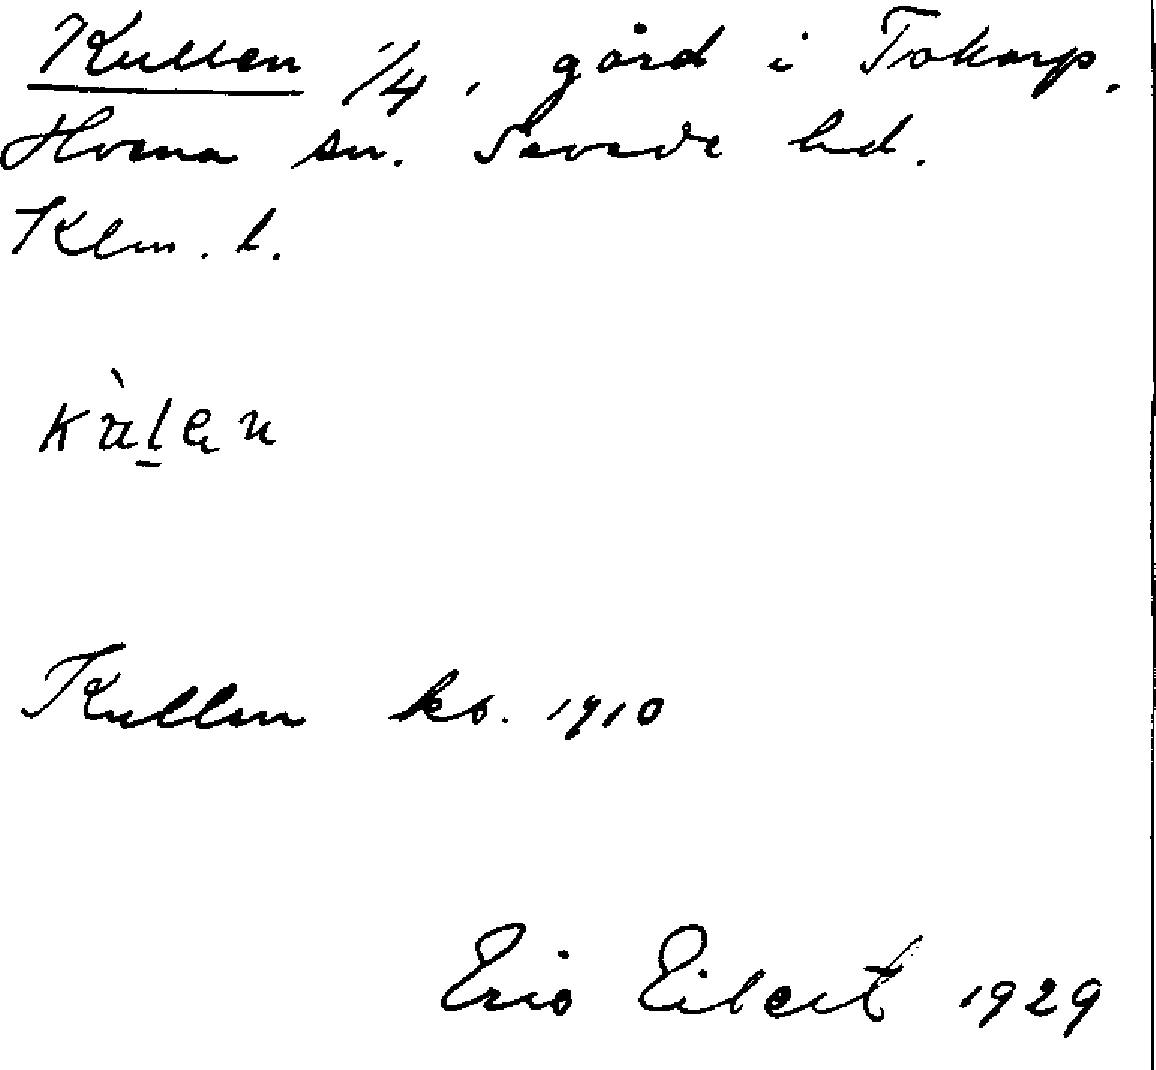 Kullen 1/4, gård i Tokarp.
Horna sn. Sevede hd.
Klm. l.
kùlen
Kullen kb. 1910
Eric Eibert 1929